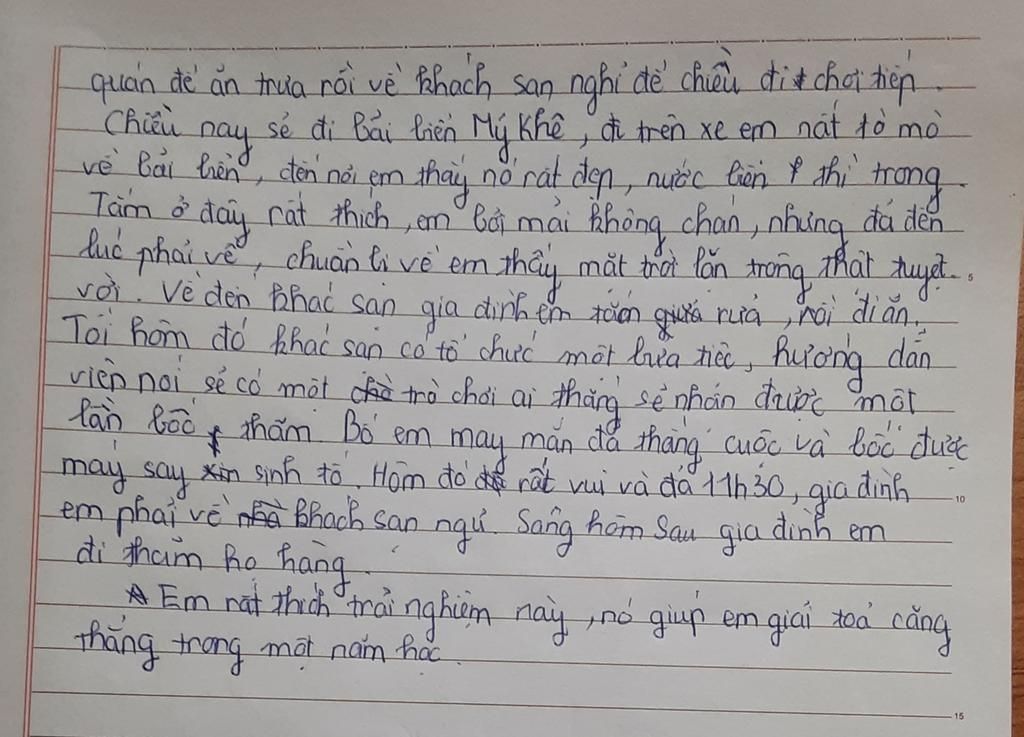 quán để ăn trưa rồi về khách sạn nghỉ để chiều đi chơi tiếp.
Chiều nay sẽ đi bãi biển Mỹ Khê, đi trên xe em rất tò mò
về bãi biển, đến nơi em thấy nó rất đẹp, nước biển thì trong.
Tắm ở đây rất thích, em bơi mãi không chán, nhưng đã đến
lúc phải về, chuẩn bị về em thấy mặt trời lặn trông thật tuyệt
vời. Về đến khác sạn gia đình em tắm rửa, rồi đi ăn.
Tối hôm đó khác sạn có tổ chức một bữa tiệc, hướng dẫn
viên nói sẽ có một trò chơi ai thắng sẽ nhận được một
lần bốc thăm. Bố em may mắn đã thắng cuộc và bốc được
máy say sinh tố. Hôm đó rất vui và đã 11h30, gia đình
em phải về khách sạn ngủ. Sáng hôm sau gia đình em
đi thăm họ hàng.
Em rất thích trải nghiệm này, nó giúp em giải toả căng
thẳng trong một năm học.
5
10
15